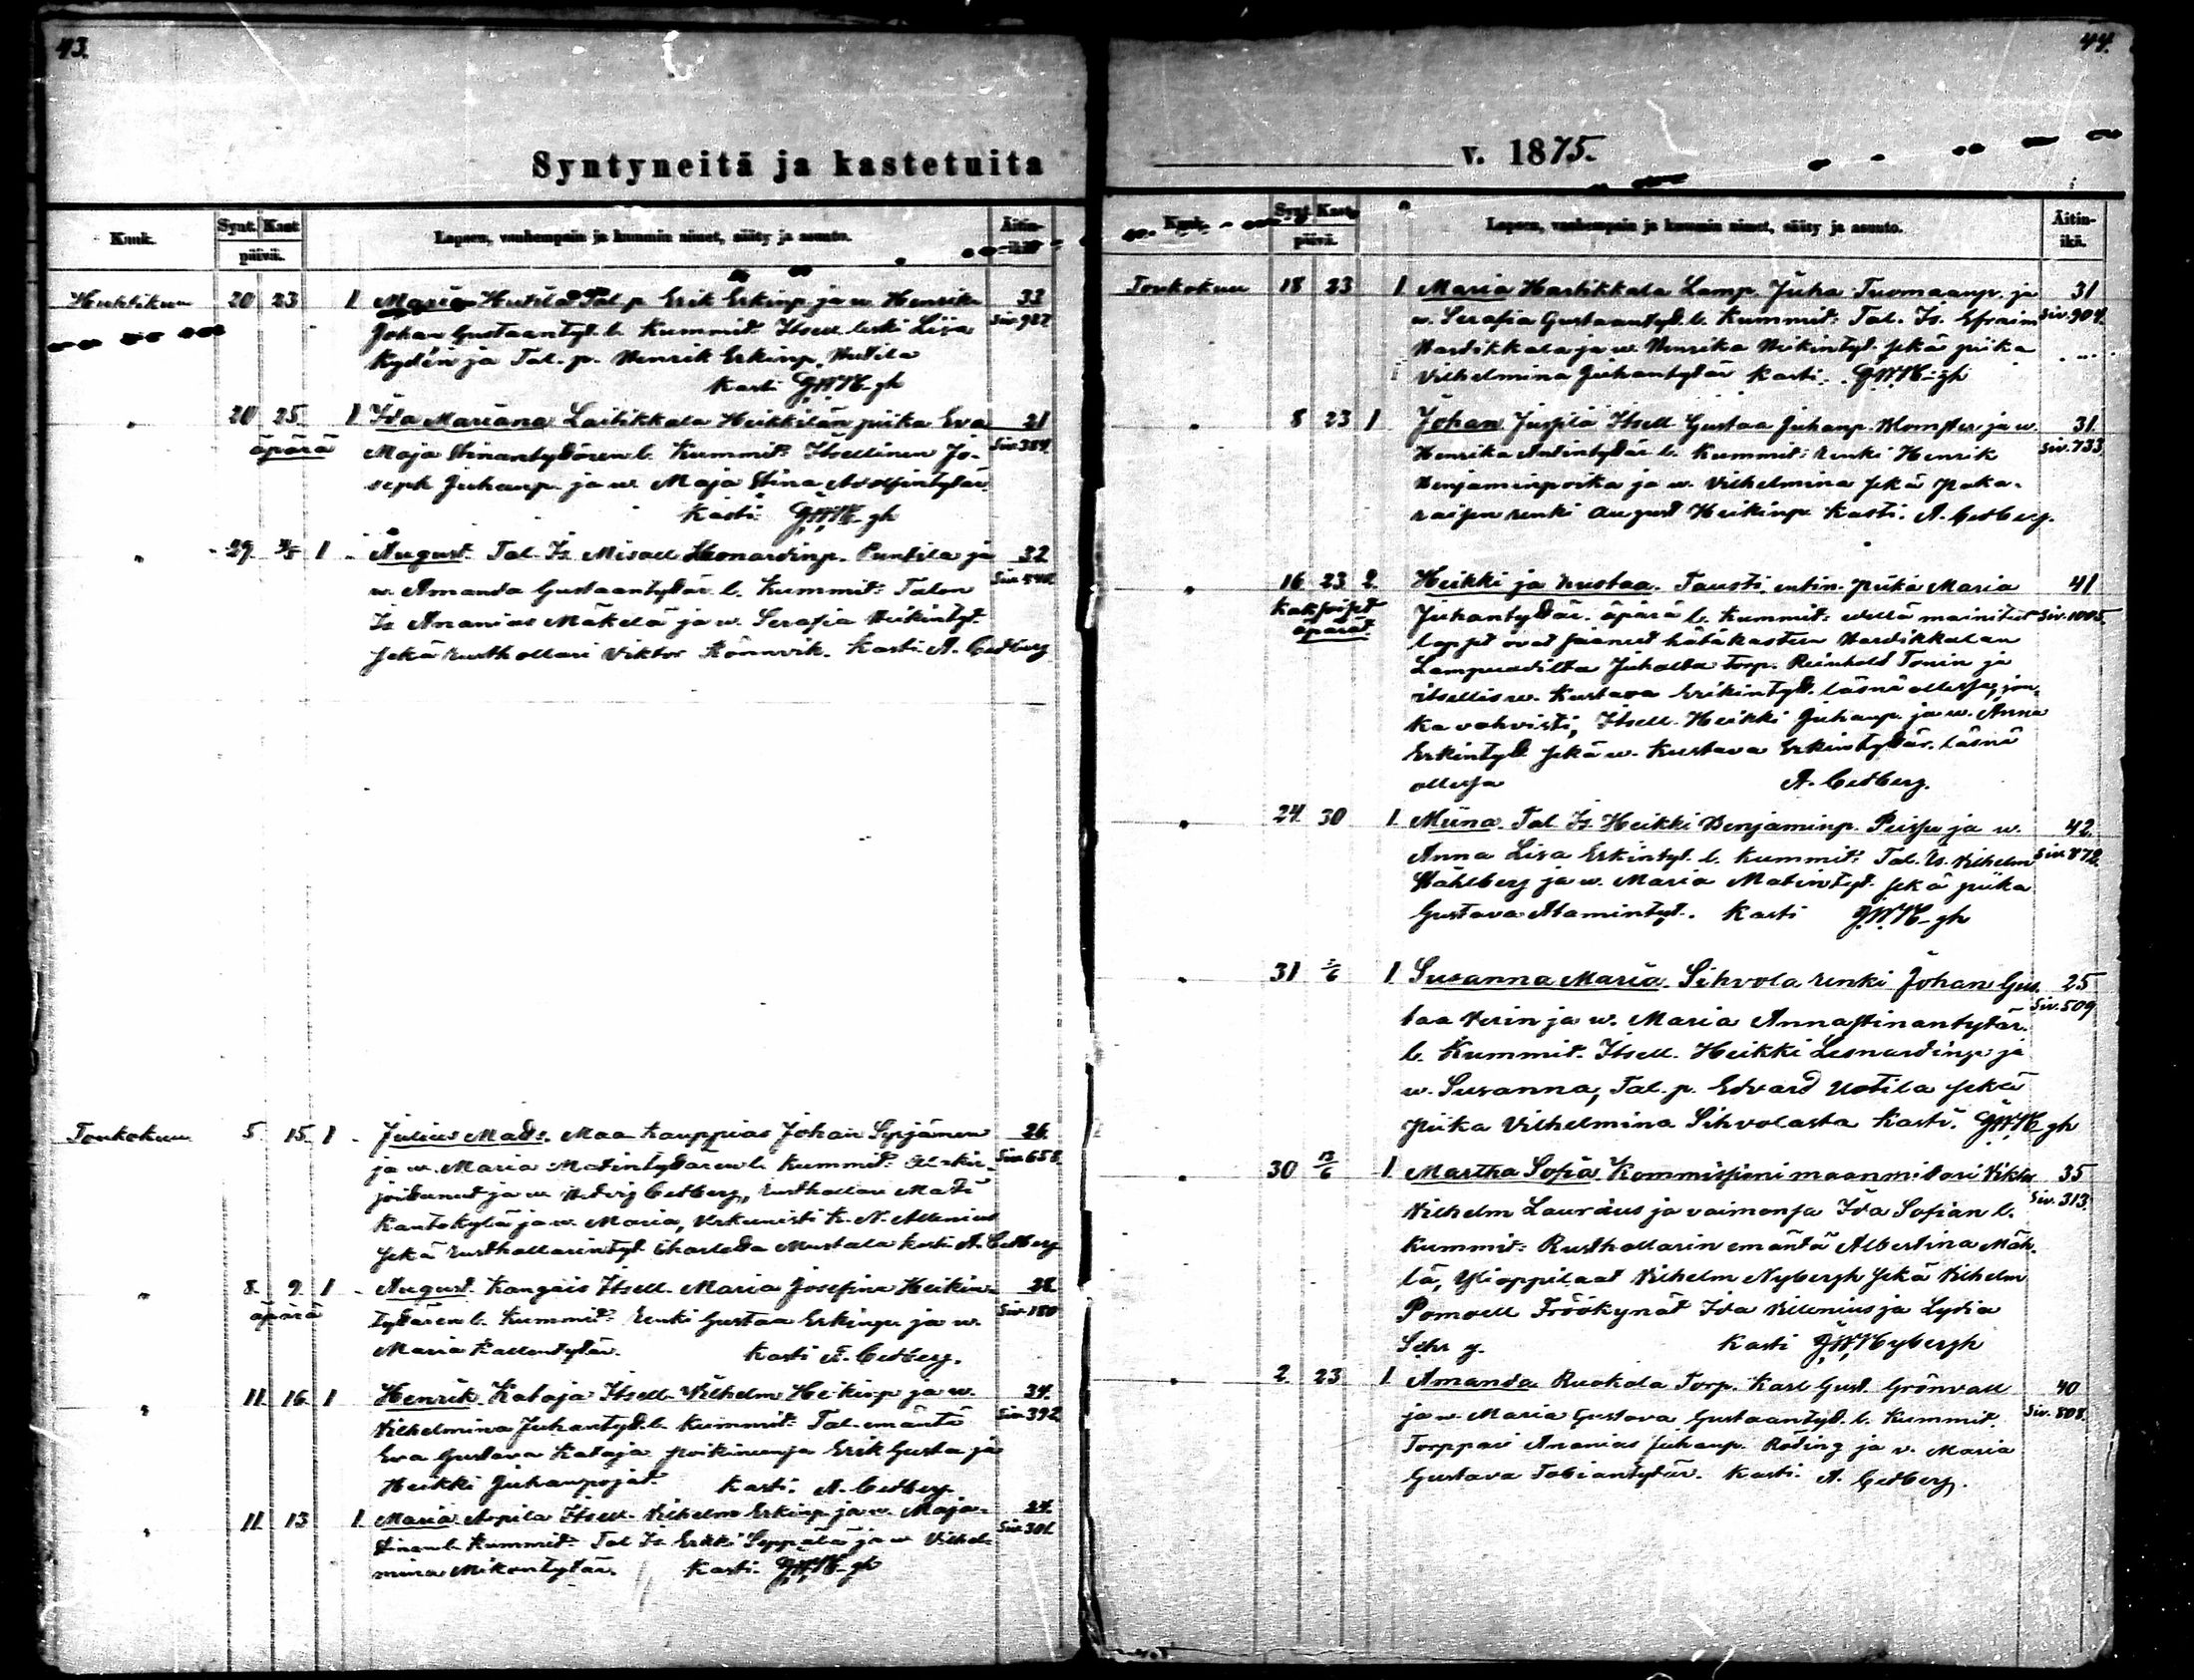 43.
Syntyneitä ja kastetuita
Kuuk. Synt. Kast. päivä. Lapsen, vanhempain ja kummin nimet, sääty ja asunto. Äitin-ikä.
Huhtikuu 20 23 1 Maria Hutila Tal. p. Erik Erkinp. ja w. Henrika 33
Johan Gustaantyt. l. Kummit: Itsell. leski Liisa Siv. 927
Kydén ja Tal. p. Henrik Erkinp. Hutila
Kasti G.W.N-gh
" 20 25. 1 Ida Mariana Laitikkala Heikkilän piika Eva 21
äpärä Maja Stinantyttären l. Kummit: Itsellinen Jo- Siv. 384.
seph Juhanp. ja w. Maja Stina Adolfintytär.
Kasti: G.W.N-gh
" 29. 1 August. Tal. Is. Misael Leonardinp. Puntila ja 32
w. Amanda Gustaantytär l. Kummit: Talon
Is. Ananias Mäkelä ja w. Serafia Heikintyt.
sekä rusthollari Viktor Rönnvik. Kasti A. Cedberg
Toukokuu 5. 15. 1 Julius Mats. Maa kauppias Johan Syrjänen 26.
ja w. Maria Matintyttären l. Kummit: Siv. 658.
ja w. Hedvig Cedberg, rusthollari Matti
Kantokylä ja w. Maria, Urkunisti K. N. Allenius
sekä rusthollarintyt. Charlotta Mustala Kasti A. Cedberg
" 8. 9. 1 August. Kangais Itsell. Maria Josefina Heikin- 28.
äpärä tyttären l. Kummit: Renki Gustaa Erkinp. ja w. Siv. 180
Maria Kallentytär. Kasti A. Cedberg.
" 11. 16. 1 Henrik. Kataja Itsell. Vilhelm Heikinp. ja w. 34.
Vilhelmina Juhantyt. l. Kummit: Tal. emäntä Siv. 392
Eva Gustava Kataja poikinensa Erik Gusta ja
Heikki Juhanpojat. Kasti. A. Cedberg.
" 11. 13 1 Maria Arpila Itsell. Vilhelm Erkinp. ja w. Maja- 24.
stinan l. Kummit: Tal. Is. Erkki Seppälä ja w. Vilhel- Siv. 301.
mina Mikontytär. Kasti. G.W.N-gh
44.
v. 1875.
Kuuk. Synt. Kast. päivä. Lapsen, vanhempain ja kummin nimet, sääty ja asunto. Äitin-ikä.
Toukokuu 18 23 1 Maria Hartikkala Lamp. Juha Tuomaanp. ja 31
w. Serafia Gustaantyt. l. Kummit: Tal. Is. Efraim Siv. 904.
Hartikkala ja w. Henrika Heikintyt. sekä piika
Vilhelmina Juhantytär Kasti. G.W.N-gh
" 8 23 1 Johan Jussila Itsell. Gustaa Juhanp. Blomster ja w. 31.
Henrika Antintytär l. Kummit: renki Henrik Siv. 733.
Benjaminpoika ja w. Vilhelmina sekä Paka-
raisen renki August Heikinp. Kasti. A. Cedberg.
" 16 23 2. Heikki ja Kustaa. Tausti entin. piika Maria 41
kaksoiset Juhantytär. äpärä l. Kummit: mainitut Siv. 1005.
äpärät. lapset ovat saaneet hätäkasteen Hartikkalan
Lampuodilta Juhalta Torp. Reinhold Tonin ja
itsellis w. Kustava Erikintyt. läsnä ollessa, jon-
ka vahvisti, Itsell. Heikki Juhanp. ja w. Anna
Erkintyt. sekä w. Kustava Erkintytär. läsnä
ollessa A. Cedberg.
" 24. 30 1 Miina. Tal. Is. Heikki Benjaminp. Peissu ja w. 42.
Anna Liisa Erkintyt. l. Kummit: Tal. Is. Vilhelm Siv. 872.
Ståhlberg ja w. Maria Matintyt. sekä piika
Gustava Adamintyt. Kasti G.W.N-gh
" 31 1 Susanna Maria. Sihvola renki Johan Gus- 25
taa Verin ja w. Maria Annastinantytär. Siv. 509
l. Kummit. Itsell. Heikki Leonardinp. ja
w. Susanna, Tal. p. Edvard Uotila sekä
piika Vilhelmina Sihvolasta Kasti. G.W.N-gh
" 30 13/6 1 Martha Sofia Kommissioni maanmittari Viktor 35
Vilhelm Lauraeus ja vaimonsa Ida Sofian l. Siv. 313.
Kummit: Rusthollarin emäntä Albertina Mäk-
lä, Ylioppilaat Vilhelm Nybergh sekä Vilhelm
Pomoell Fröökynät Ida Willenius ja Lydia
Kasti G.W.Nybergh
" 2. 23 1 Amanda Ruokola Torp. Karl Gust. Grönvall 40
ja w. Maria Gustava Gustaantyt. l. Kummit. Siv. 808.
Torppari Ananias Juhanp. Roting ja v. Maria
Gustava Tobiantytär. Kasti. A. Cedberg.